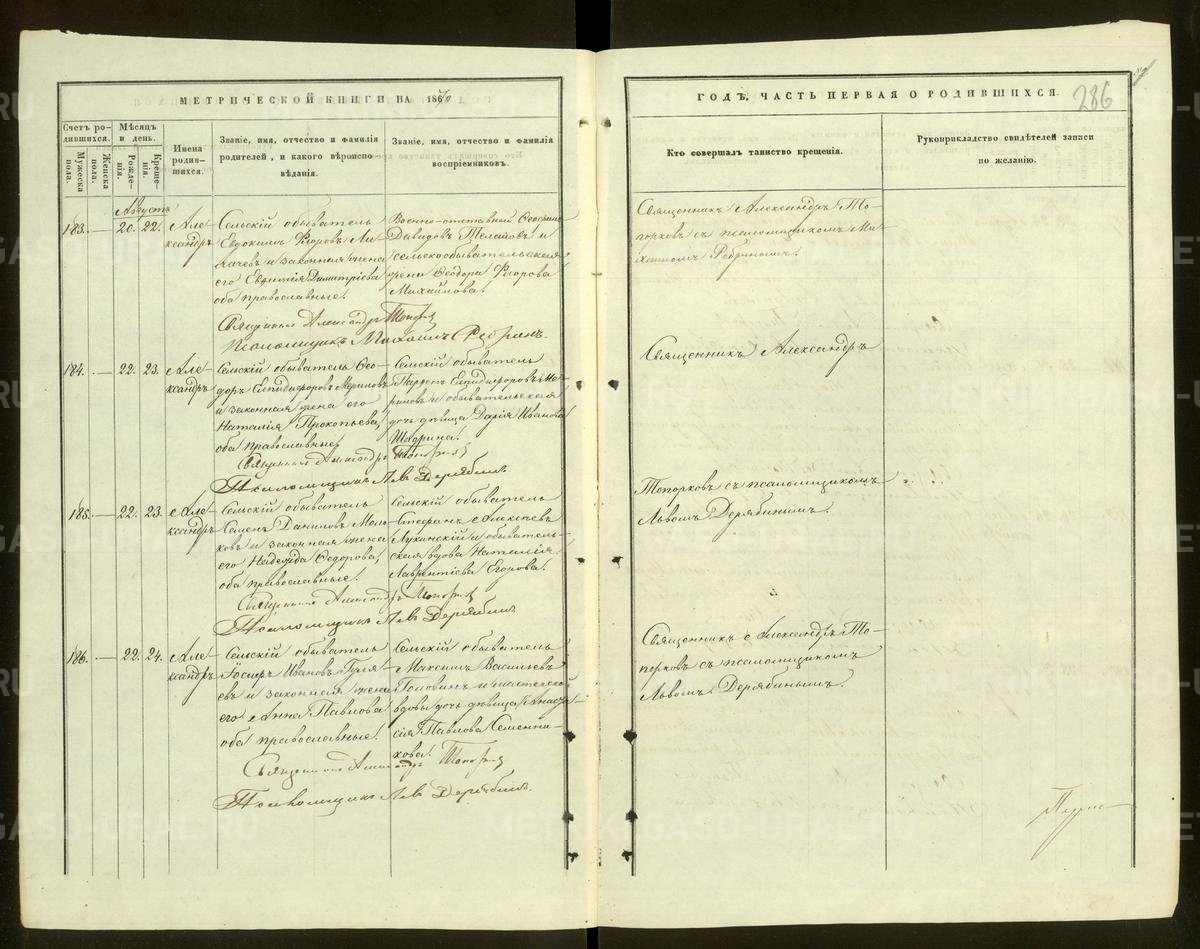 МЕТРИЧЕСКОЙ КНИГИ НА 1870
Счетъ родившихся.
Мужеска пола.
Женска пола.
Мѣсяцъ и день.
Рожденія.
Крещенія.
Имена родившихся.
Званіе, имя, отчество и фамилія
родителей, и какого вѣроисповѣданія.
Званіе, имя, отчество и фамилія
воспріемниковъ.
Августъ
183. — 20. 22.
Александръ
Сельскій обыватель
Евдокимъ Ѳедоровъ
и законная жена
его Евгенія Димитріева
оба православные.
Военно-отставной
Давидовъ
и
сельскообывательская
жена Ѳеодора
Михайлова.
Священникъ Александръ Топорковъ
Псаломщикъ Михаилъ Ребринъ.
184. — 22. 23.
Александръ
Сельскій обыватель Ѳеодоръ
Епидифоровъ
и законная жена его
Наталія Прокопьева,
оба православные,
Сельскій обыватель
Парѳенъ Епидифоровъ
и обывательская
дочь дѣвица Дарія Иванова
Шадрина.
Священникъ Александръ Топорковъ
Псаломщикъ Левъ Дерябинъ
185. — 22. 23.
Александръ
Сельскій обыватель
Семенъ Даниловъ
и законная жена
его Надежда Ѳедорова,
оба православные.
Сельскій обыватель
Стефанъ Алексѣевъ
и обывательская
вдова Наталія
Лаврентіева Егорова.
Священникъ Александръ Топорковъ
Псаломщикъ Левъ Дерябинъ
186. — 22. 24.
Александръ
Сельскій обыватель
Іосифъ Ивановъ Гуляевъ
и законная жена
его Анна Павлова
оба православные.
Сельскій обыватель
Максимъ Васильевъ
Головинъ и мастерской
вдовы дочь дѣвица Анастасія
Павлова Семенникова.
Священникъ Александръ Топорковъ
Псаломщикъ Левъ Дерябинъ.
ГОДЪ, ЧАСТЬ ПЕРВАЯ О РОДИВШИХСЯ.
286
Кто совершалъ таинство крещенія.
Рукоприкладство свидѣтелей записи
по желанію.
Священникъ Александръ Топорковъ
съ псаломщикомъ Михаиломъ
Ребринымъ.
Священникъ Александръ
Топорковъ съ псаломщикомъ
Львомъ Дерябинымъ.
Священникъ Александръ Топорковъ
съ псаломщикомъ
Львомъ Дерябинымъ.
METRIKI.GASO-URAL.RU